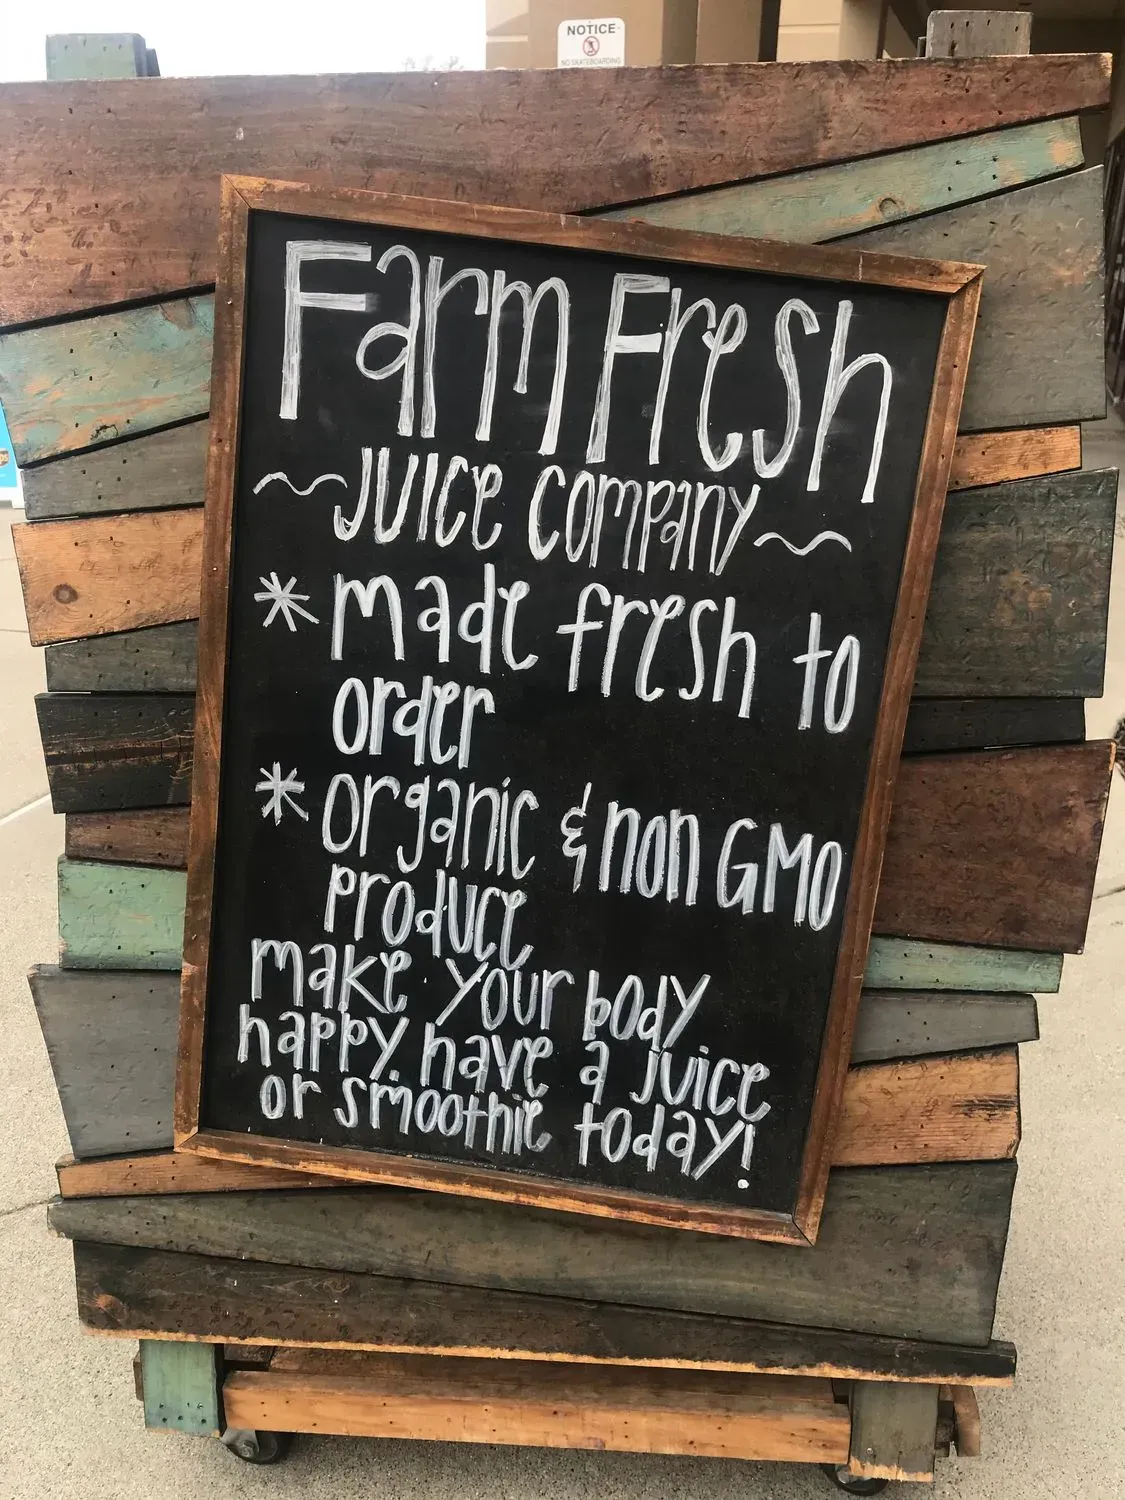 NOTICE
NO SKATEBOARDING
Farm Fresh
~JUICE COMPANY~
* made fresh to
order
* organic & non GMO
produce
make your body
happy, have a juice
or smoothie today!